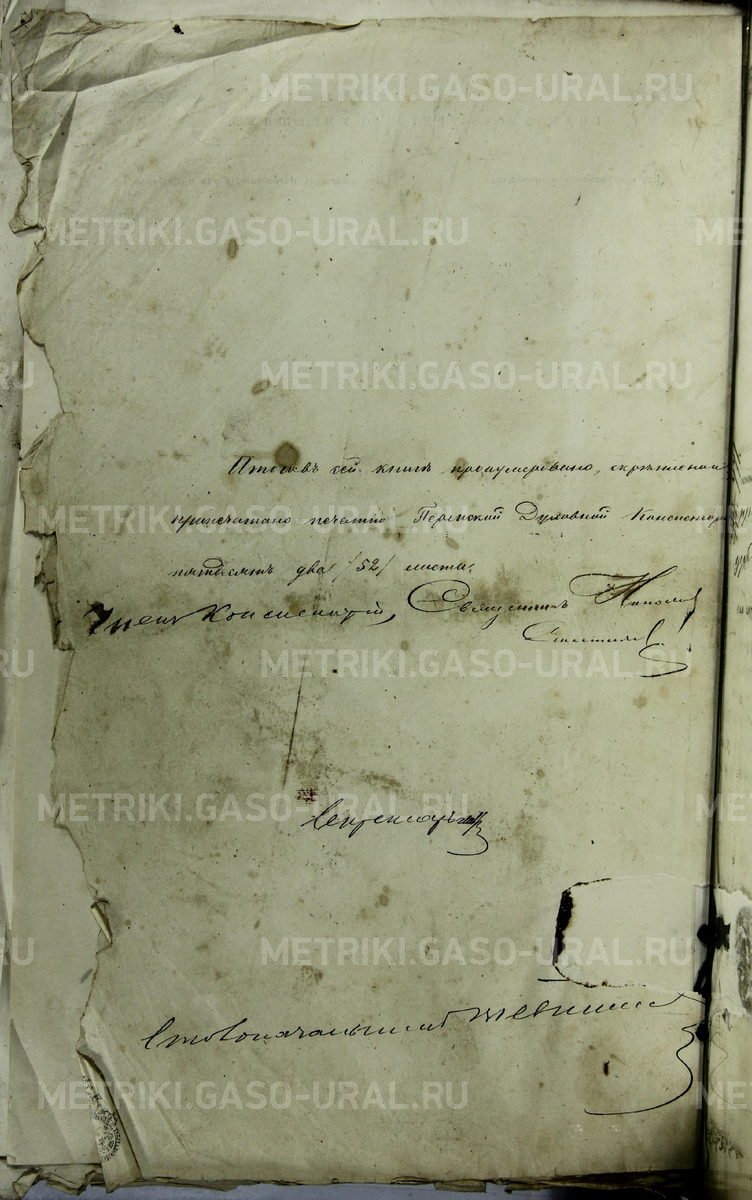 METRIKI.GASO-URAL.RU
METRIKI.GASO-URAL.RU
METRIKI.GASO-URAL.RU
Итого въ сей книгѣ пронумеровано, скрѣплено и
припечатано печатью Пермской Духовной Консисторіи
METRIKI.GASO-URAL.RU
пятьдесятъ два /52/ листа.
Членъ Консисторіи, Священникъ Николай
METRIKI.GASO-URAL.RU
Секретарь
METRIKI.GASO-URAL.RU
METRIKI.GASO-URAL.RU
Столоначальникъ
METRIKI.GASO-URAL.RU